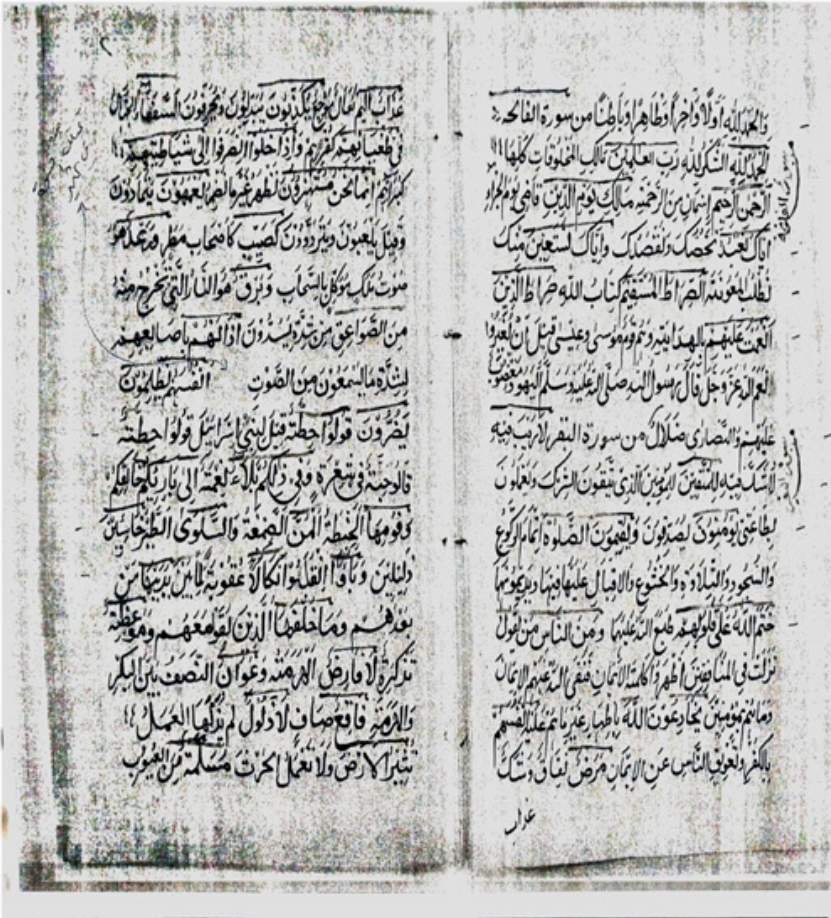 والحمد لله أولا وآخرا وظاهرا وباطنا من سورة الفاتحة
الحمد لله الشكر لله رب العالمين مالك المخلوقات كلها
الرحمن الرحيم اسمان من الرحمة مالك يوم الدين قاضي يوم الجزاء
اياك نعبد نخصك ونقصدك واياك نستعين منك
نطلب المعونة الصراط المستقيم كتاب الله صراط الذين
انعمت عليهم بالهداية وهم قوم موسى وعيسى قبل ان
الله عز وجل قال رسول الله صلى الله عليه وسلم اليهود
عليهم والنصارى ضلال من سورة البقرة لا ريب فيه
لا شك فيه للمتقين المؤمنين الذين يتقون الشرك ويعملون
بطاعتي يؤمنون يصدقون ويقيمون الصلوة اتمام الركوع
والسجود والتلاوة والخشوع والاقبال عليها فيها
ختم الله على قلوبهم طبع الله عليها ومن الناس من يقول
نزلت في المنافقين اظهروا كلمة الايمان فنفى الله عنهم الايمان
وما هم بمؤمنين يخادعون الله باظهار غير ما هم عليه انفسهم
بالكفر وتعويق الناس عن الايمان مرض نفاق وشك
عذاب
عذاب اليم موجع يكذبون يبدلون ويحرفون السفهاء الجهال
في طغيانهم كفرهم واذا خلوا انصرفوا الى شياطينهم
كبرائهم انما نحن مستهزؤن يعمهون يتمادون
وقيل يلعبون ويترددون كصيب كاصحاب مطر ورعد هو
صوت ملك موكل بالسحاب وبرق هو النار التي تخرج منه
من الصواعق من شدة يسدون اذانهم باصابعهم
لشدة ما يسمعون من الصوت انفسهم يظلمون
يضرون قولوا حطة قيل لبني اسرائيل قولوا حطة
قالوا حبة في شعرة وفي ذلكم بلاء نعمة الى بارئكم خالقكم
وفومها الحنطة المن الصمغة والسلوى الطير خاسئين
ذليلين وباؤا انقلبوا نكالا عقوبة لما بين يديها من
بعدهم وما خلفها الذين بقوا معهم وموعظة
تذكرة لا فارض الهرمة وعوان النصف بين البكر
والهرمة فاقع صاف لا ذلول لم يذلها العمل
تثير الارض ولا تعمل الحرث مسلمة من العيوب